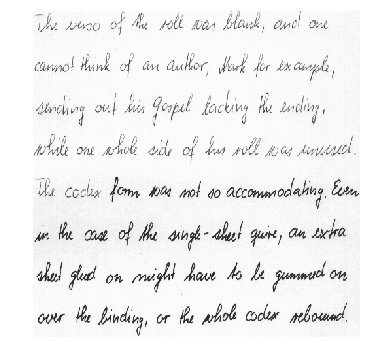 The verso of the roll was blank, and one
cannot think of an author, Mark for example,
sending out his Gospel lacking the ending,
while one whole side of his roll was unused.
The codex form was not so accommodating. Even
in the case of the single-sheet quire, an extra
sheet glued on might have to be gummed on
over the binding, or the whole codex rebound.